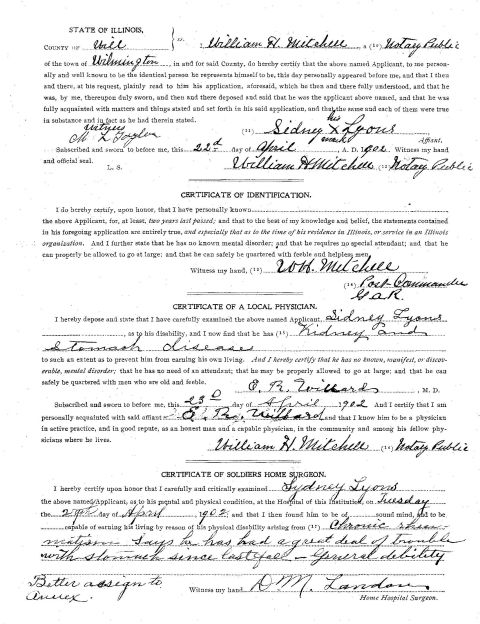 STATE OF ILLINOIS,
COUNTY OF Will } ss. I, William H. Mitchell, a (10) Notary Public
of the town of Wilmington, in and for said County, do hereby certify that the above named Applicant, to me person-
ally and well known to be the identical person he represents himself to be, this day personally appeared before me, and that I then
and there, at his request, plainly read to him his application, aforesaid, which he then and there fully understood, and that he
was, by me, thereupon duly sworn, and then and there deposed and said that he was the applicant above named, and that he was
fully acquainted with matters and things stated and set forth in his said application, and that the same and each of them were true
in substance and in fact as he had therein stated.
witness his
M L (11) Sidney X Lyons
mark Affiant.
Subscribed and sworn to before me, this 22d day of April, A. D. 1902. Witness my hand
and official seal.
L. S. William H Mitchell (12) Notary Public
CERTIFICATE OF IDENTIFICATION.
I do hereby certify, upon honor, that I have personally known
the above Applicant, for, at least, two years last passed; and that to the best of my knowledge and belief, the statements contained
in his foregoing application are entirely true, and especially that as to the time of his residence in Illinois, or service in an Illinois
organization. And I further state that he has no known mental disorder; and that he requires no special attendant; and that he
can properly be allowed to go at large; and that he can safely be quartered with feeble and helpless men.
Witness my hand, (13) W H. Mitchell
(14) Post Commander
G.A.R.
CERTIFICATE OF A LOCAL PHYSICIAN.
I hereby depose and state that I have carefully examined the above named Applicant, Sidney Lyons
, as to his disability, and I now find that he has (15) Kidney and
Stomach disease
to such an extent as to prevent him from earning his own living. And I hereby certify that he has no known, manifest, or discov-
erable, mental disorder; that he has no need of an attendant; that he may be properly allowed to go at large; and that he can
safely be quartered with men who are old and feeble.
E. R. Willard, M. D.
Subscribed and sworn to before me, this 23d day of April, 1902 And I certify that I am
personally acquainted with said affiant E. R. Willard and that I know him to be a physician
in active practice, and in good repute, as an honest man and a capable physician, in the community and among his fellow phy-
sicians where he lives.
William H. Mitchell (16) Notary Public
CERTIFICATE OF SOLDIERS HOME SURGEON.
I hereby certify upon honor that I carefully and critically examined Sydney Lyons
the above named Applicant, as to his mental and physical condition, at the Hospital of this Institution, on Tuesday
the 29th day of April 1902; and that I then found him to be of sound mind, and to be
capable of earning his living by reason of his physical disability arising from (17) Chronic rheu
matism. Says he has had a great deal of trouble
with stomach since last fall - General debility
Better assign to
Annex. Witness my hand D. M. Landon
Home Hospital Surgeon.